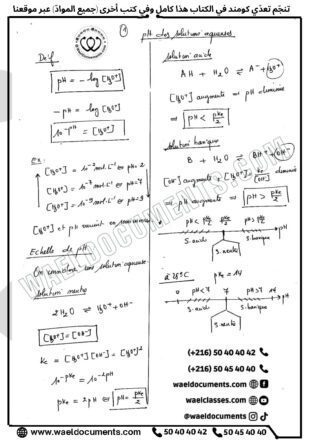 تنجّم تعدّي كومند في الكتاب هذا كامل وفي كتب أخرى (جميع الموادّ) عبر موقعنا
① pH des solutions aqueuses
Déf
pH = -log [H₃O⁺]
-pH = log [H₃O⁺]
10^-pH = [H₃O⁺]
Ex:
[H₃O⁺] = 10⁻² mol.L⁻¹ ⇔ pH = 2
[H₃O⁺] = 10⁻⁷ mol.L⁻¹ ⇔ pH = 7
[H₃O⁺] = 10⁻⁹ mol.L⁻¹ ⇔ pH = 9
[H₃O⁺] et pH varient en sens inverse
Echelle de pH:
On considère une solution aqueuse
Solution neutre
2H₂O ⇌ H₃O⁺ + OH⁻
[H₃O⁺] = [OH⁻]
Ke = [H₃O⁺][OH⁻] = [H₃O⁺]²
10^-pKe = 10^-2pH
pKe = 2pH ⇔ pH = pKe/2
Solution acide
AH + H₂O ⇌ A⁻ + H₃O⁺
[H₃O⁺] augmente ⇒ pH diminue
⇒ pH < pKe/2
Solution basique
B + H₂O ⇌ BH⁺ + OH⁻
[OH⁻] augmente ; [H₃O⁺] = Ke/[OH⁻] diminue
⇒ pH augmente ⇒ pH > pKe/2
pH < pKe/2 pKe/2 pH > pKe/2 pH
S. acide S. basique
S. neutre
à 25°C pKe = 14
pH < 7 7 pH > 7 14 pH
S. acide S. basique
S. neutre
WAELDOCUMENTS.COM
(+216) 50 40 40 42
(+216) 50 45 40 40
waeldocuments.com
waelclasses.com
@waeldocuments
www.waeldocuments.com 50 40 40 42 50 45 40 40